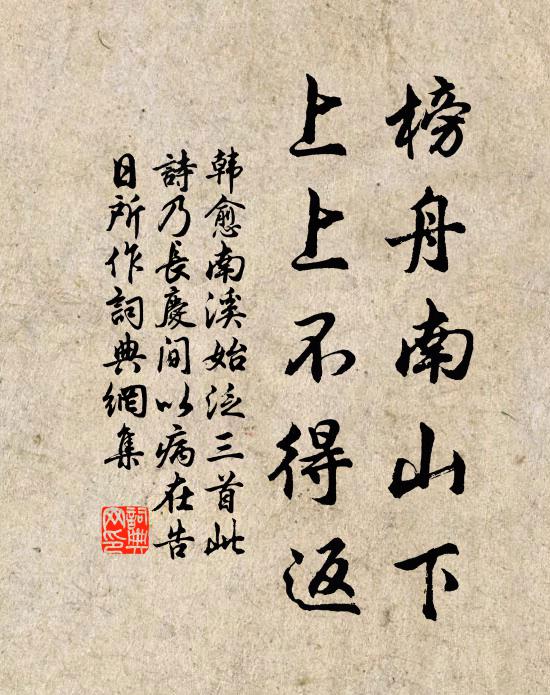 榜舟南山下
上上不得返
韩愈南溪始泛三首此
詩乃長慶间以病在告
日所作詞典網集
詞典
网印